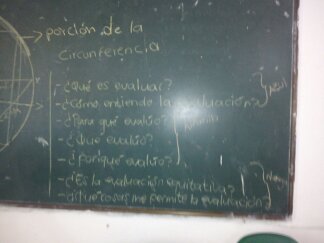 porción de la
circunferencia
- ¿Qué es evaluar?
- ¿Cómo entiende la evaluación?
- ¿Para qué evalúo?
- ¿Que evalúo?
- ¿porque evalúo?
- ¿Es la evaluación equitativa?
- ¿Que cosas me permite la evaluación